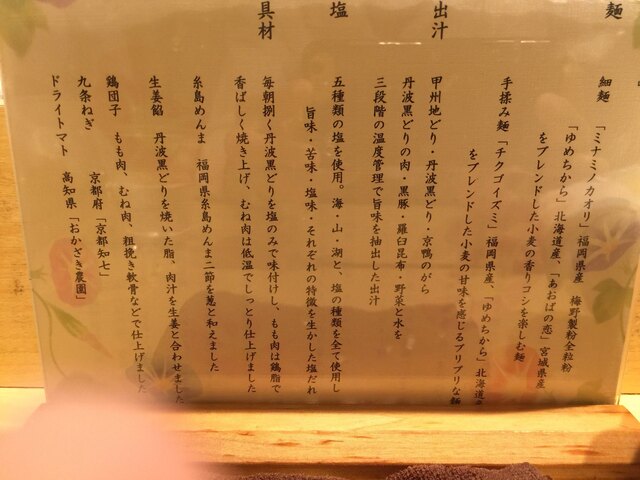 麺
細麺 「ミナミノカオリ」福岡県産 梅野製粉全粒粉
「ゆめちから」北海道産、「あおばの恋」宮城県産
をブレンドした小麦の香りコシを楽しむ麺
手揉み麺「チクゴイズミ」福岡県産、「ゆめちから」北海道産
をブレンドした小麦の甘味を感じるプリプリな麺
出汁
甲州地どり・丹波黒どり・京鴨のがら
丹波黒どりの肉・黒豚・羅臼昆布・野菜と水を
三段階の温度管理で旨味を抽出した出汁
塩
五種類の塩を使用。海・山・湖と、塩の種類を全て使用し
旨味・苦味・塩味・それぞれの特徴を生かした塩だれ
具材
毎朝捌く丹波黒どりを塩のみで味付けし、もも肉は鶏脂で
香ばしく焼き上げ、むね肉は低温でしっとり仕上げました
糸島めんま 福岡県糸島めんま二節を葱と和えました
生姜餡 丹波黒どりを焼いた脂、肉汁を生姜と合わせました
鶏団子 もも肉、むね肉、粗挽き軟骨などで仕上げました
九条ねぎ 京都府「京都知七」
ドライトマト 高知県「おかざき農園」